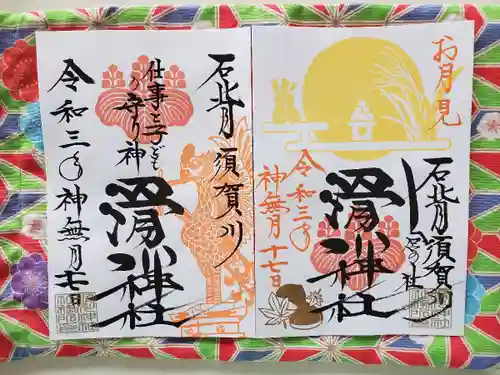 お月見
石背須賀川
滑川神社
令和三年
神無月十七日
石背
須賀川
仕事と子ども
の守り神
滑川神社
令和三年神無月十七日